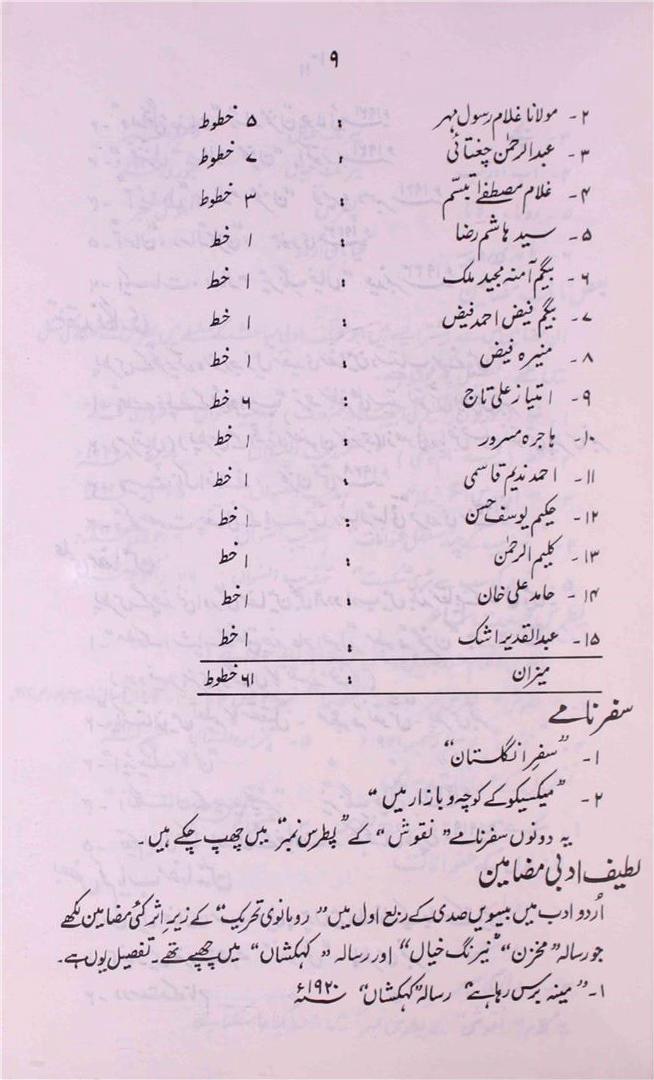 ۹
۲۔ مولانا غلام رسول مہر : ۵ خطوط
۳۔ عبدالرحمٰن چغتائی : ۷ خطوط
۴۔ غلام مصطفےٰ تبسّم : ۳ خطوط
۵۔ سید ہاشم رضا : ۱ خط
۶۔ بیگم آمنہ مجید ملک : ۱ خط
۷۔ بیگم فیض احمد فیض : ۱ خط
۸۔ منیرہ فیض : ۱ خط
۹۔ امتیاز علی تاج : ۶ خط
۱۰۔ ہاجرہ مسرور : ۱ خط
۱۱۔ احمد ندیم قاسمی : ۱ خط
۱۲۔ حکیم یوسف حسن : ۱ خط
۱۳۔ کلیم الرحمٰن : ۱ خط
۱۴۔ حامد علی خان : ۱ خط
۱۵۔ عبدالقدیر اشک : ۱ خط
میزان : ۶۱ خطوط
سفر نامے
۱۔ "سفرِ انگلستان"
۲۔ "میکسیکو کے کوچہ و بازار میں"
یہ دونوں سفرنامے "نقوش" کے "پطرس نمبر" میں چھپ چکے ہیں۔
لطیف ادبی مضامین
اُردو ادب میں بیسویں صدی کے ربع اول میں "رومانوی تحریک" کے زیرِ اثر کئی مضامین لکھے
جو رسالہ "مخزن" "نیرنگ خیال" اور رسالہ "کہکشاں" میں چھپے تھے۔ تفصیل یوں ہے۔
۱۔ "مینہ برس رہا ہے" رسالہ "کہکشاں" ۱۹۲۰ء